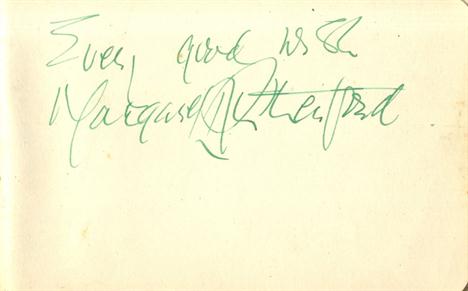 Every good wish
Margaret Rutherford